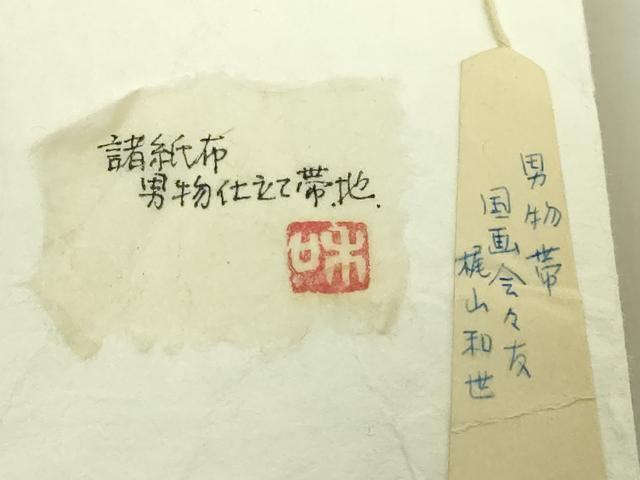 諸紙布
男物仕立て帯地.
男物帯
国画会々友
梶山和世